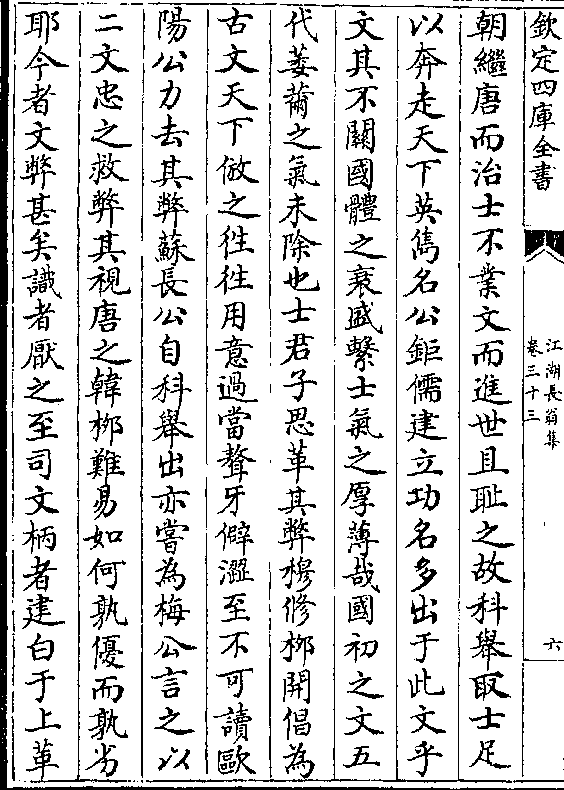 欽定四庫全書
江湖長翁集
卷三十三
六
朝繼唐而治士不業文而進世且恥之故科舉取士足
以奔走天下英雋名公鉅儒建立功名多出于此文乎
文其不關國體之衰盛繫士氣之厚薄哉國初之文五
代萎薾之氣未除也士君子思革其弊穆修栁開倡為
古文天下倣之徃徃用意過當聱牙僻澀至不可讀歐
陽公力去其弊蘇長公自科舉出亦嘗為梅公言之以
二文忠之救弊其視唐之韓栁難易如何孰優而孰劣
耶今者文弊甚矣識者厭之至司文柄者建白于上革